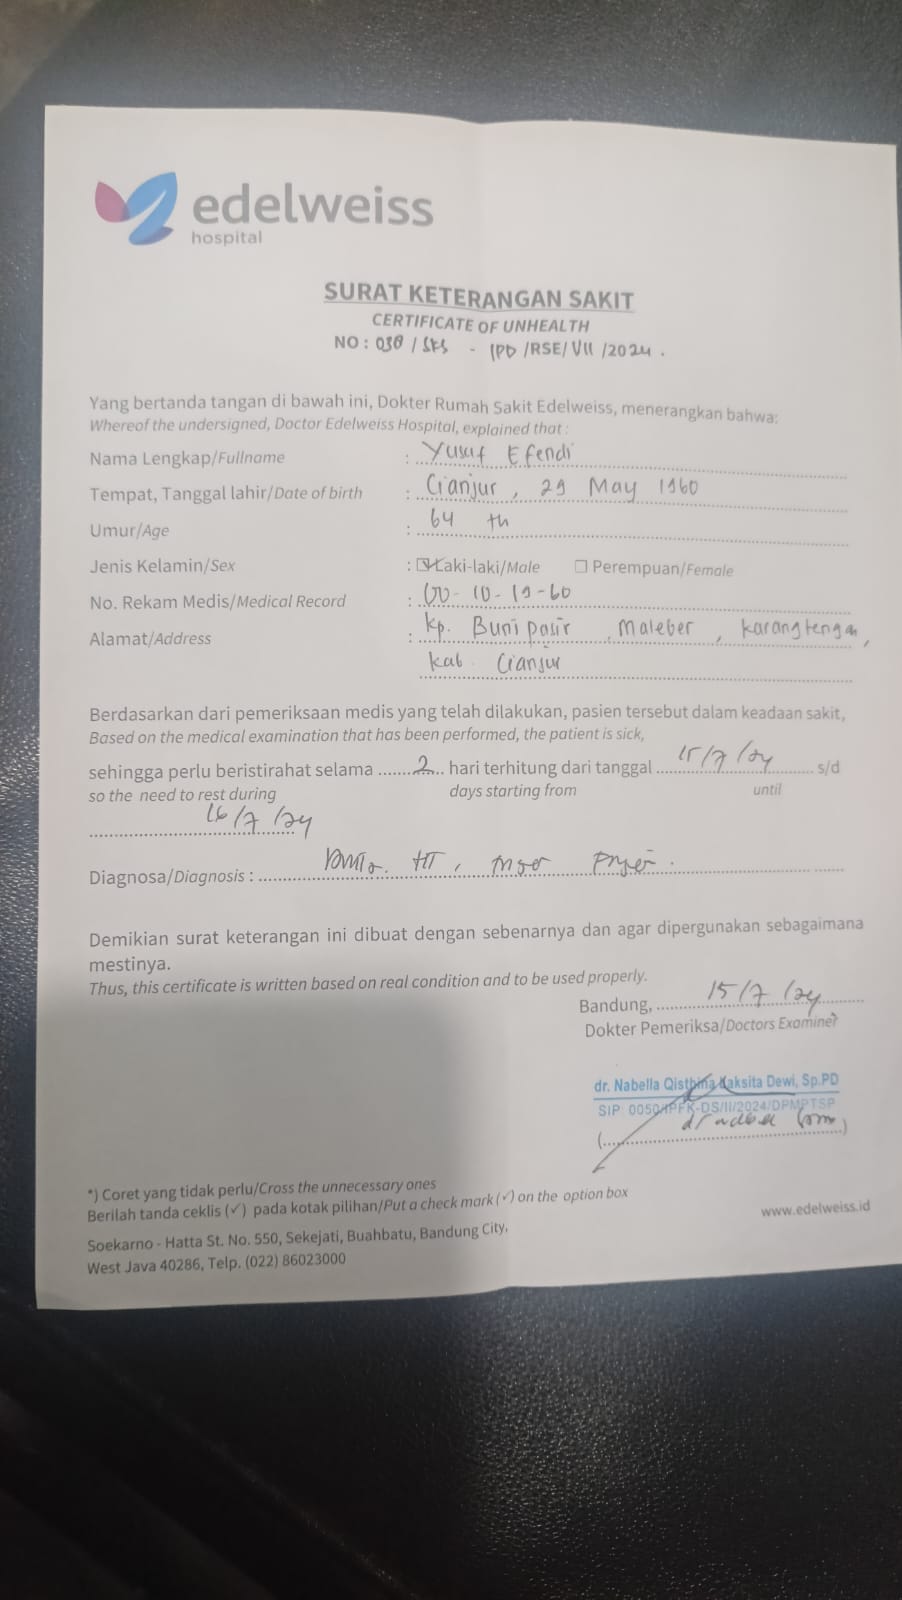 edelweiss
hospital
SURAT KETERANGAN SAKIT
CERTIFICATE OF UNHEALTH
NO : 038 / SKS - IPD /RSE/ VII /2024 .
Yang bertanda tangan di bawah ini, Dokter Rumah Sakit Edelweiss, menerangkan bahwa:
Whereof the undersigned, Doctor Edelweiss Hospital, explained that :
Nama Lengkap/Fullname : Yusuf Efendi
Tempat, Tanggal lahir/Date of birth : Cianjur , 29 May 1960
Umur/Age : 64 th
Jenis Kelamin/Sex : ☑ Laki-laki/Male ☐ Perempuan/Female
No. Rekam Medis/Medical Record : 00-10-19-60
Alamat/Address : kp. Buni pasir , Maleber , karangtengah,
kab. Cianjur
Berdasarkan dari pemeriksaan medis yang telah dilakukan, pasien tersebut dalam keadaan sakit,
Based on the medical examination that has been performed, the patient is sick,
sehingga perlu beristirahat selama 2 hari terhitung dari tanggal 15/7/24 s/d
so the need to rest during days starting from until
16/7/24
Diagnosa/Diagnosis : HT,
Demikian surat keterangan ini dibuat dengan sebenarnya dan agar dipergunakan sebagaimana
mestinya.
Thus, this certificate is written based on real condition and to be used properly.
Bandung, 15/7/24
Dokter Pemeriksa/Doctors Examiner
dr. Nabella Qisthina Kaksita Dewi, Sp.PD
SIP 0050/IPFK-DS/II/2024/DPMPTSP
*) Coret yang tidak perlu/Cross the unnecessary ones
Berilah tanda ceklis (✓) pada kotak pilihan/Put a check mark (✓) on the option box
www.edelweiss.id
Soekarno - Hatta St. No. 550, Sekejati, Buahbatu, Bandung City,
West Java 40286, Telp. (022) 86023000